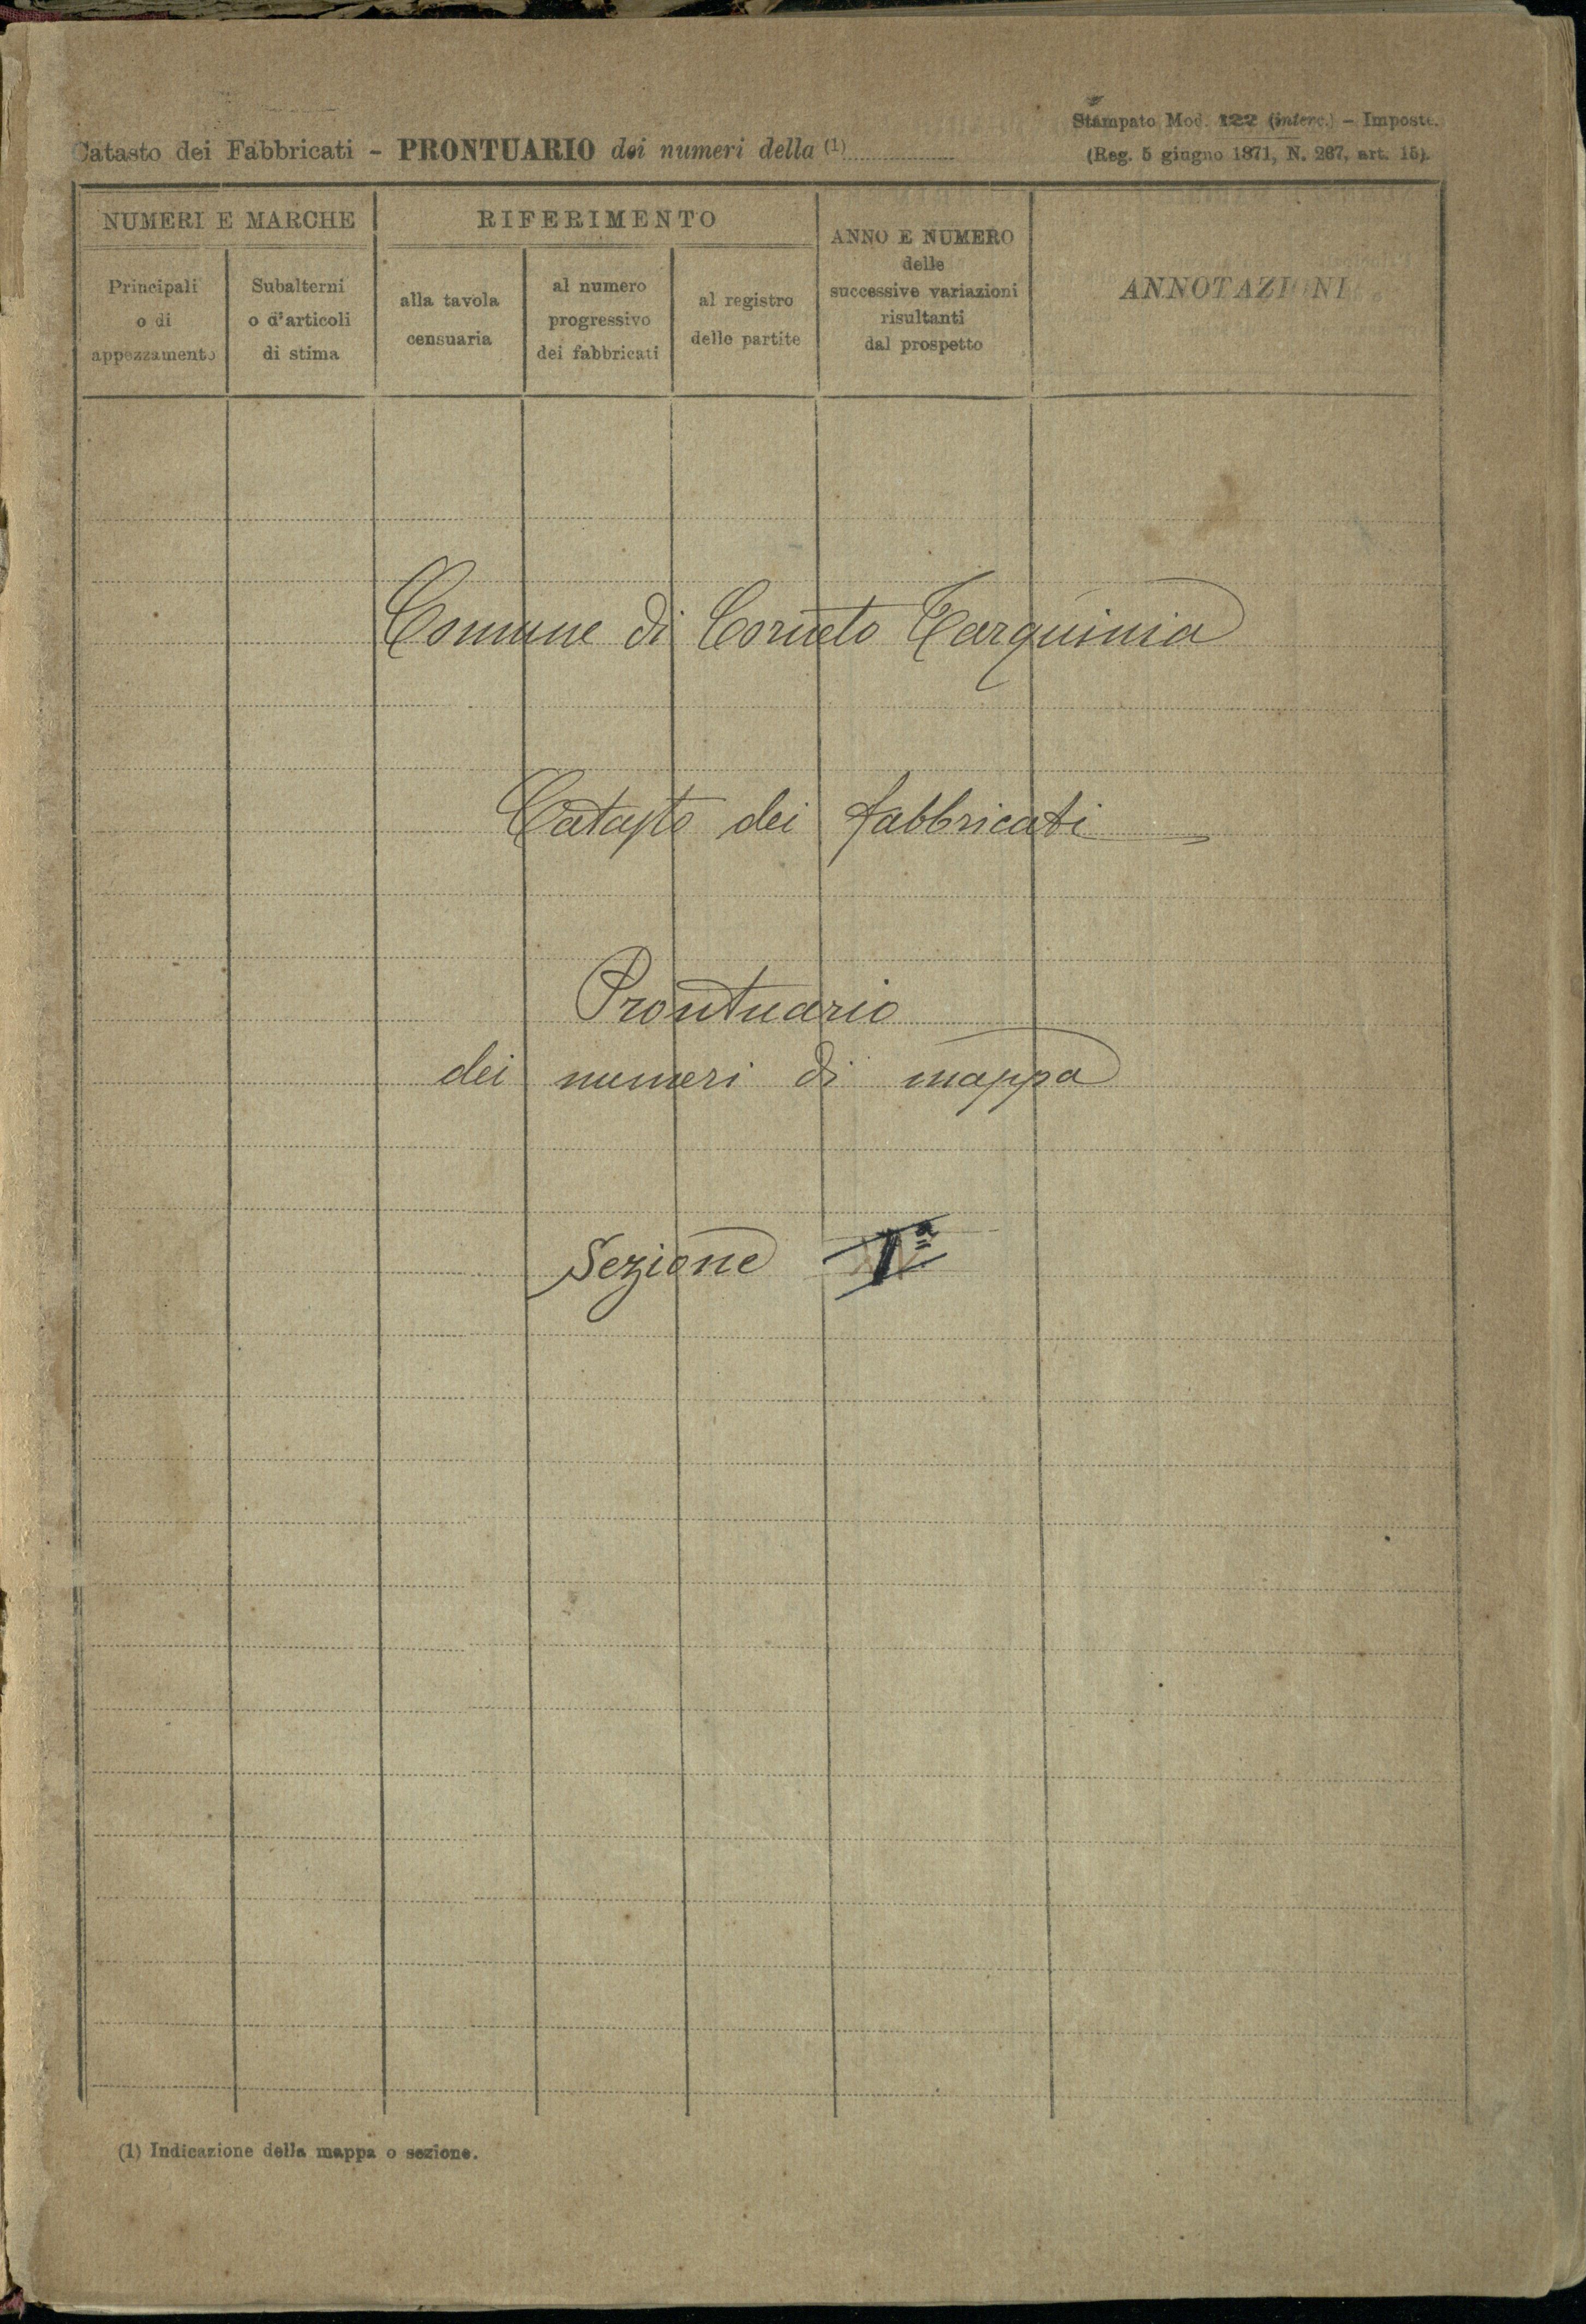 Stampato Mod. 122 (interc.) – Imposte.
Catasto dei Fabbricati – PRONTUARIO dei numeri della (1)
(Reg. 5 giugno 1871, N. 267, art. 15).
NUMERI E MARCHE
RIFERIMENTO
ANNO E NUMERO
delle
successive variazioni
risultanti
dal prospetto
ANNOTAZIONI
Principali
o di
appezzamento
Subalterni
o d'articoli
di stima
alla tavola
censuaria
al numero
progressivo
dei fabbricati
al registro
delle partite
Comune di Corneto Tarquinia
Catasto dei fabbricati
Prontuario
dei numeri di mappa
Sezione Iª
(1) Indicazione della mappa o sezione.